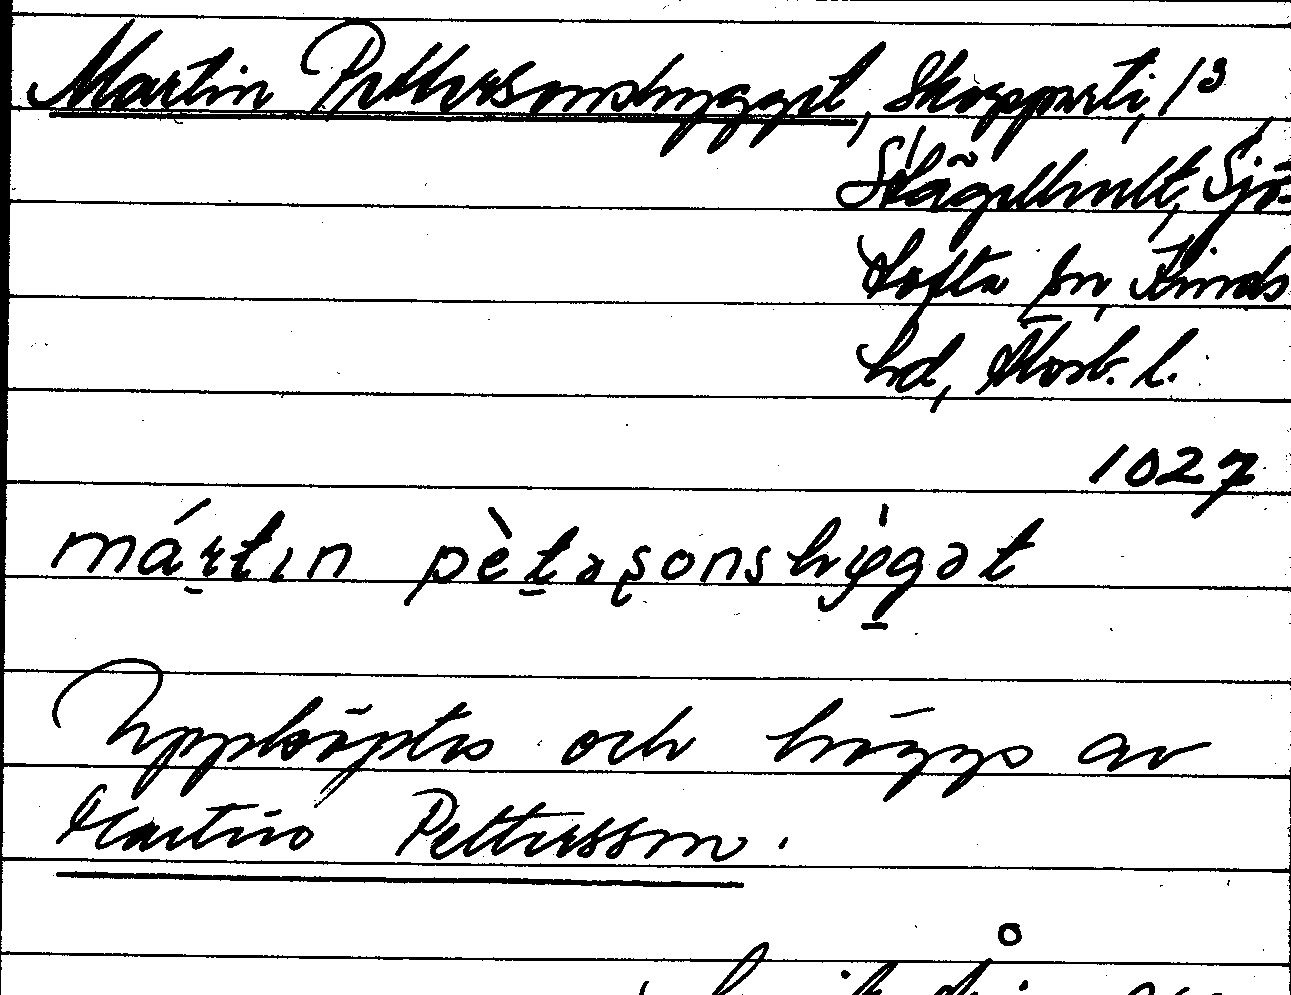 Martin Petterssonshygget, Skogsparti, 1³
Skägelhult, Sjö-
tofta sn, Kinds
hd, Älvsb. l.
1027
mártin pètasonshygget
Uppköptes och höggs av
Martin Pettersson.